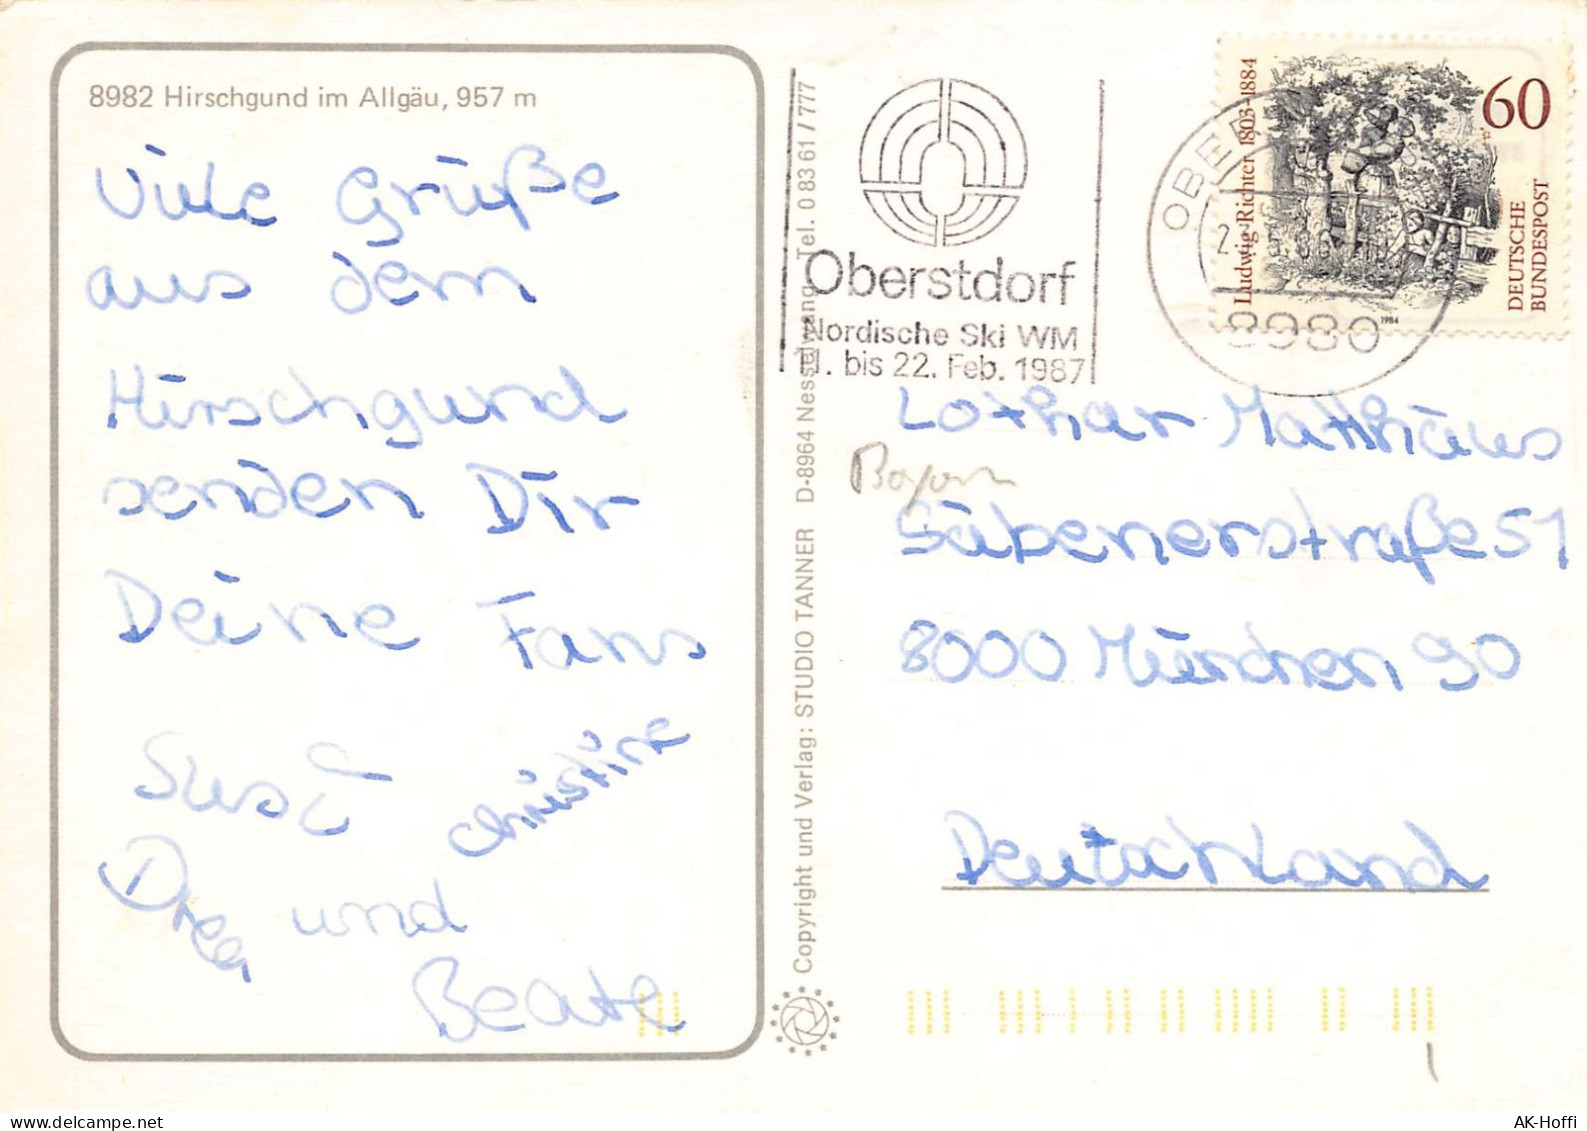 8982 Hirschgund im Allgäu, 957 m
Viele Grüße
aus dem
Hirschgund
senden Dir
Deine Fans
Susi
Christine
Drea und
Beate
Copyright und Verlag: STUDIO TANNER D-8964 Nesselwang Tel. 0 83 61 / 777
Oberstdorf
Nordische Ski WM
11. bis 22. Feb. 1987
8980
Ludwig Richter 1803-1884
60
DEUTSCHE
BUNDESPOST
1984
Lothar Matthäus
Bayern
Säbenerstraße 51
8000 München 90
Deutschland
AK-Hoffi